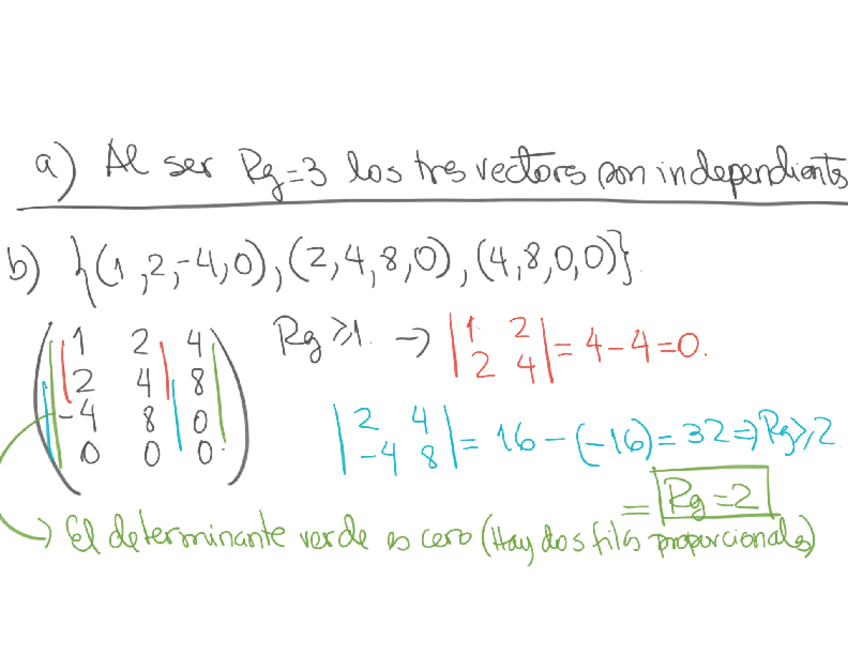 a) Al ser Rg=3 los tres vectors son independients
b) {(1,2,-4,0),(2,4,8,0),(4,8,0,0)}
1 2 4
2 4 8
-4 8 0
0 0 0
Rg ≥1. → |1 2| = 4-4=0.
|2 4|
|2 4| = 16-(-16)=32 ⇒ Rg≥2
|-4 8|
= Rg=2
→ El determinante verde es cero (Hay dos filas proporcionales)